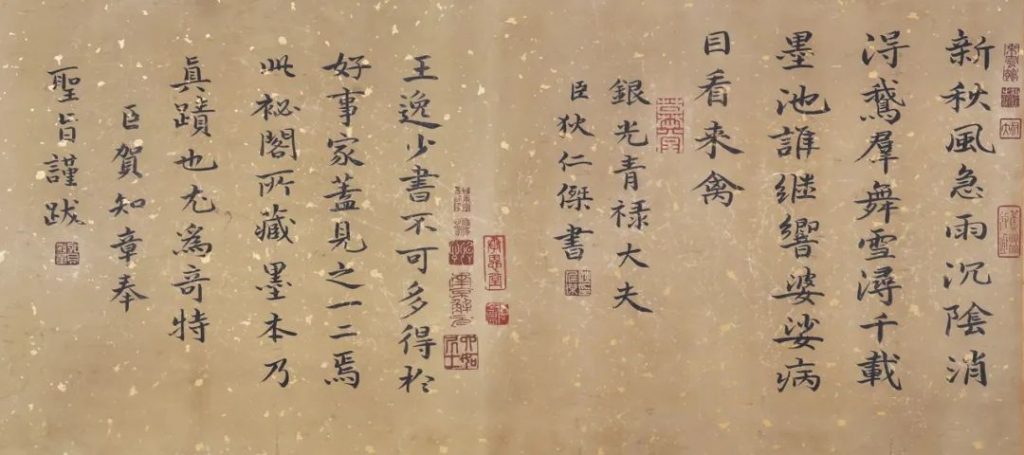 新秋風急雨沉陰消
淂鵞羣舞雪潯千載
墨池誰継響婆娑病
目看来禽
銀光青禄大夫
臣狄仁傑書
王逸少書不可多得於
好事家蓋見之一二焉
此祕閣所藏墨本乃
真蹟也尤為竒特
臣賀知章奉
聖旨謹跋